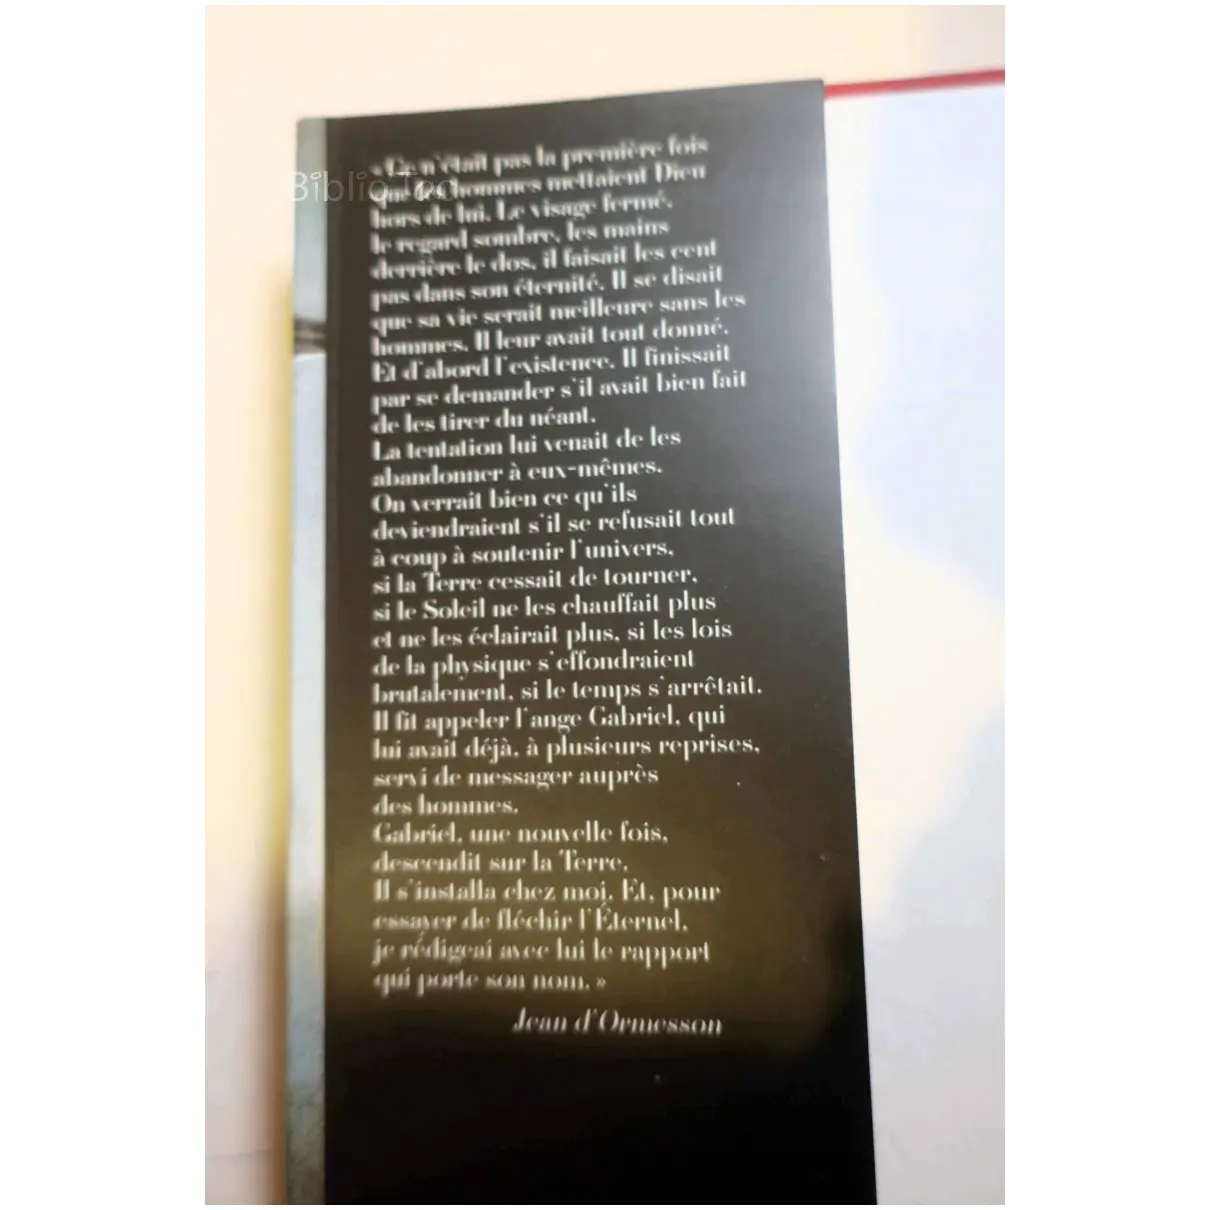 « Ce n'était pas la première fois
que les hommes mettaient Dieu
hors de lui. Le visage fermé,
le regard sombre, les mains
derrière le dos, il faisait les cent
pas dans son éternité. Il se disait
que sa vie serait meilleure sans les
hommes. Il leur avait tout donné.
Et d'abord l'existence. Il finissait
par se demander s'il avait bien fait
de les tirer du néant.
La tentation lui venait de les
abandonner à eux-mêmes.
On verrait bien ce qu'ils
deviendraient s'il se refusait tout
à coup à soutenir l'univers,
si la Terre cessait de tourner,
si le Soleil ne les chauffait plus
et ne les éclairait plus, si les lois
de la physique s'effondraient
brutalement, si le temps s'arrêtait.
Il fit appeler l'ange Gabriel, qui
lui avait déjà, à plusieurs reprises,
servi de messager auprès
des hommes.
Gabriel, une nouvelle fois,
descendit sur la Terre.
Il s'installa chez moi. Et, pour
essayer de fléchir l'Éternel,
je rédigeai avec lui le rapport
qui porte son nom. »
Jean d'Ormesson
BiblioTea